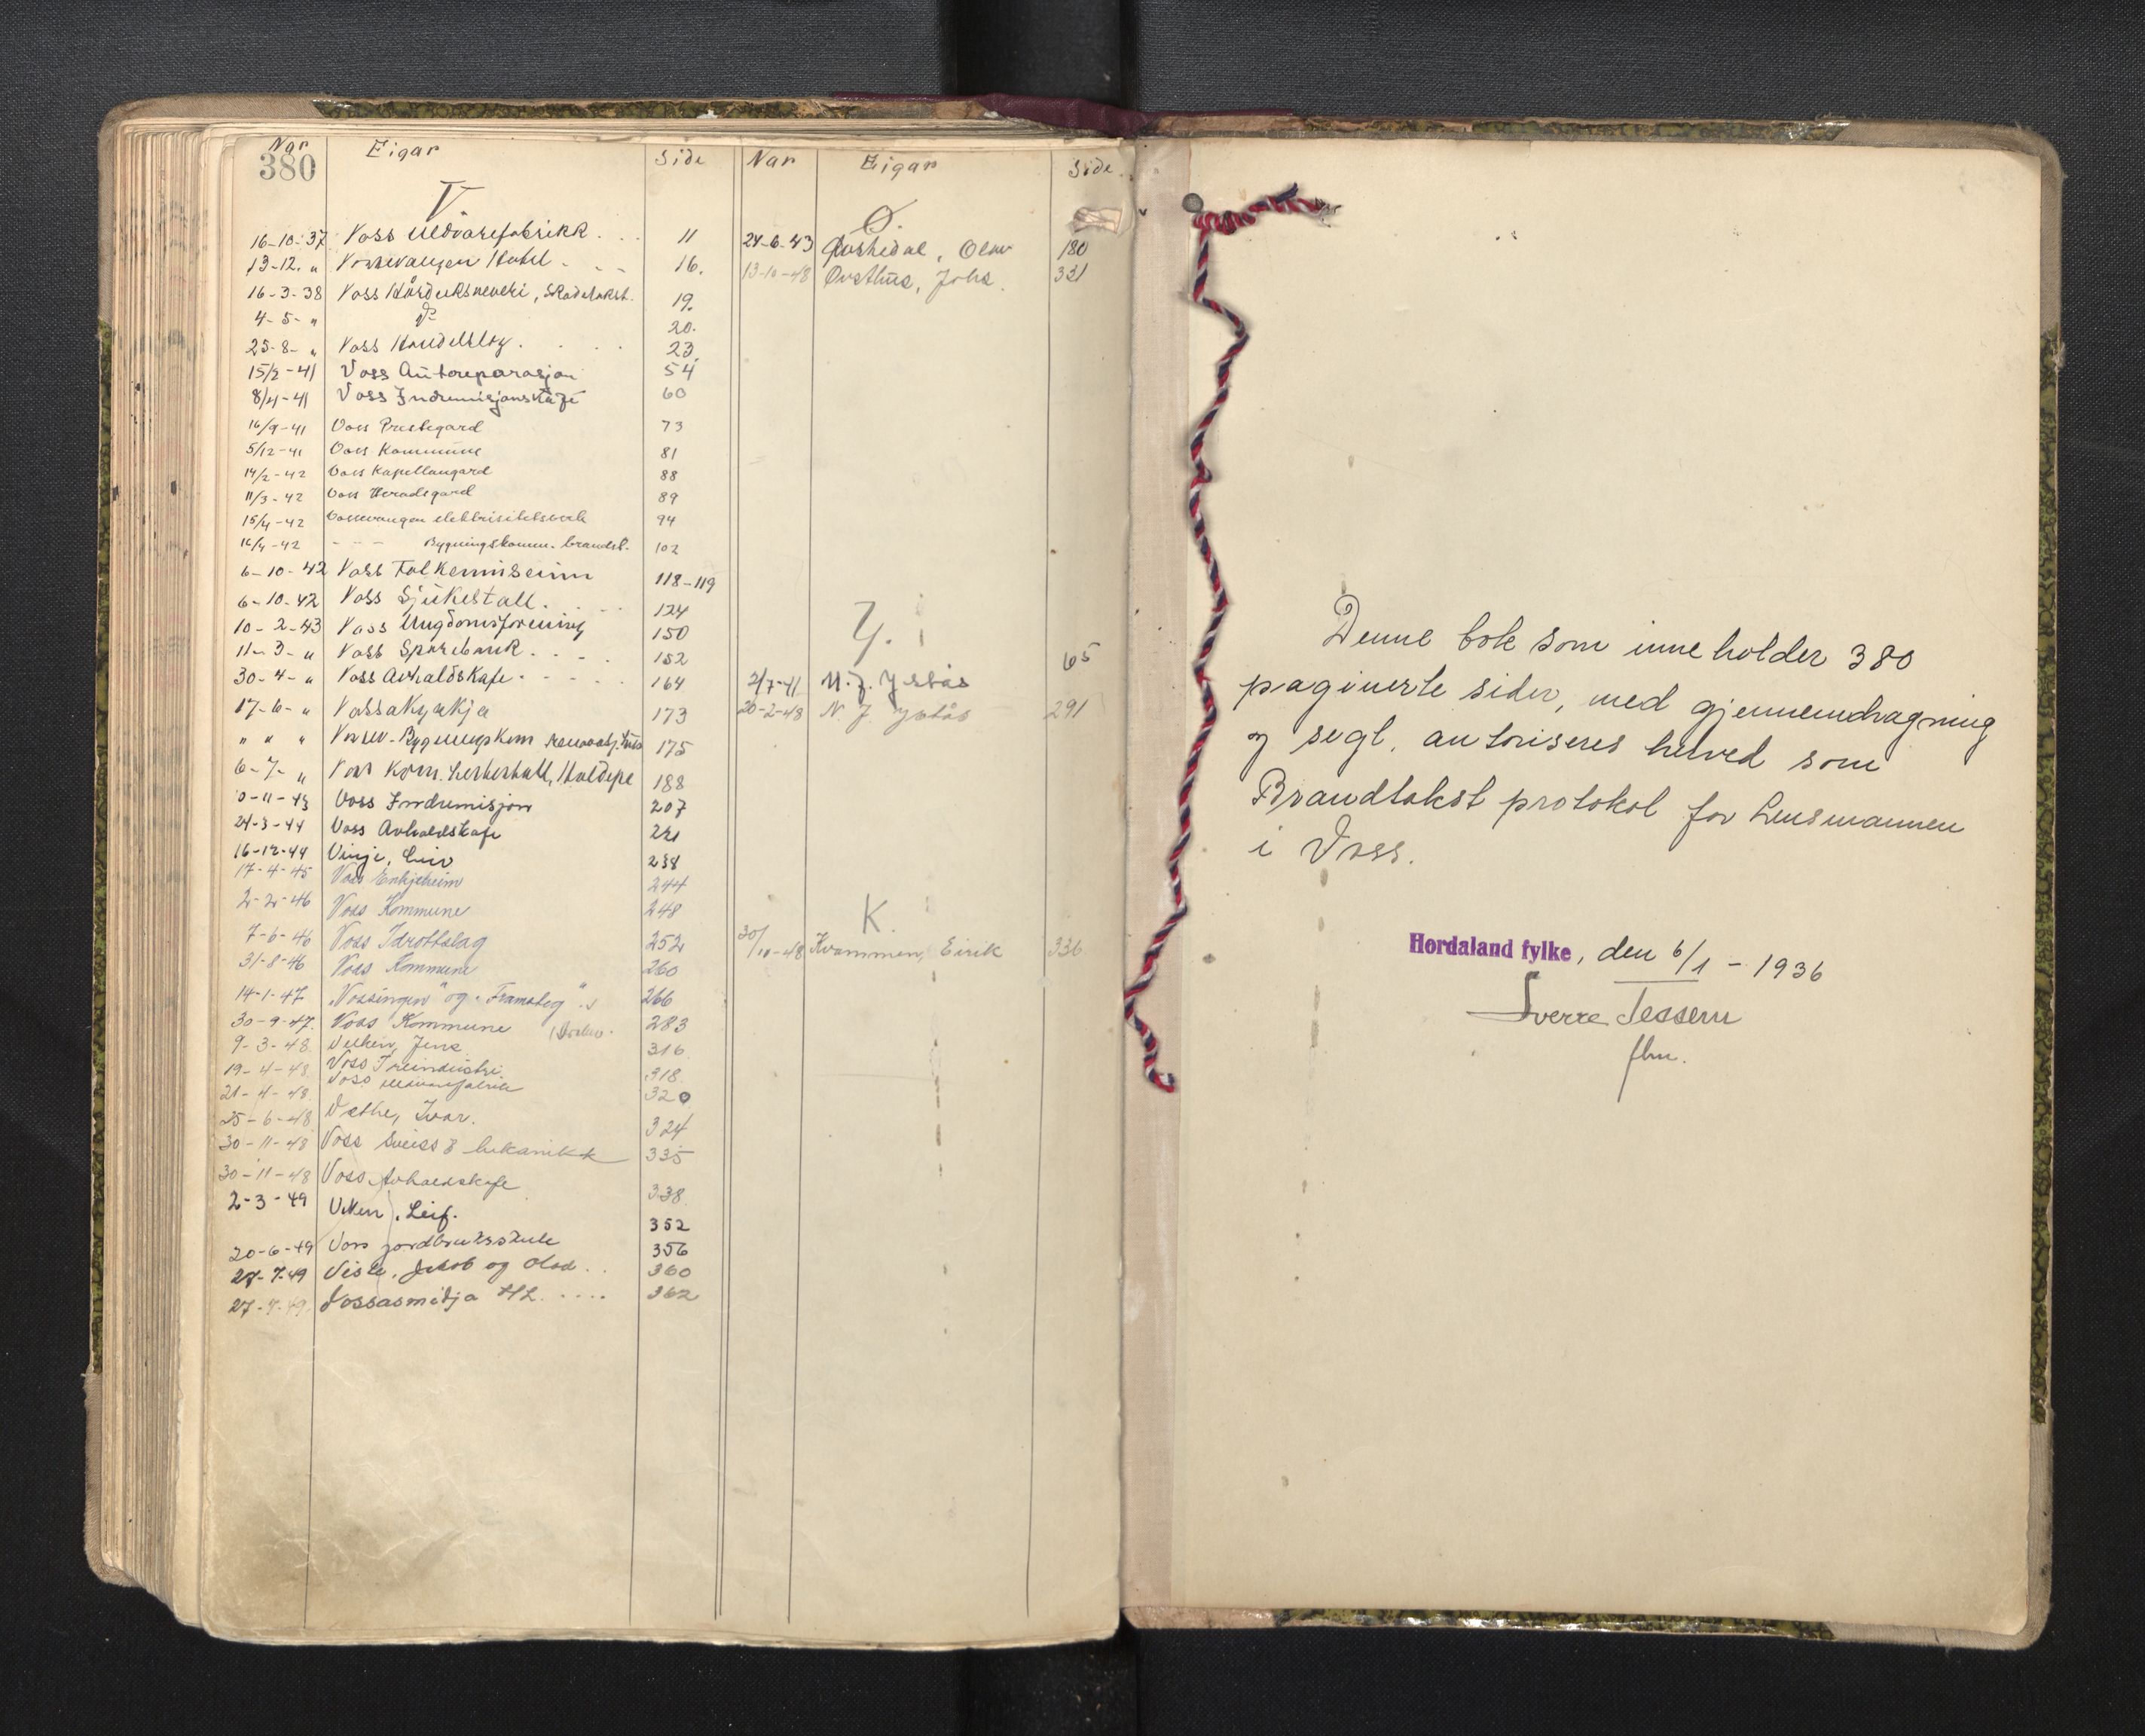 380
Nar Eigar Side
V
16-10-37 Voss Uldvarefabrikk . . . 11
13-12. " Vossevangen Hotel - - - 16.
16-3-38 Voss Hårduksveveri, Skadetakst. 19.
4-5- " do 20.
25-8- " Voss Handelslag . . . 23.
15/2-41 Voss Autoreparasjon 54
8/4-41 Voss Indremisjonskafe 60
16/9-41 Voss Prestegard 73
5/12-41 Voss Kommune 81
14/2-42 Voss Kapellangard 88
11/3-42 Voss Heradsgard 89
15/4-42 Vossevangen elektrisitetsverk 94
16/4-42 - - - Bygningskomm. brandst. 102
6-10-42 Voss Folkemuseum 118-119
6-10-42 Voss Sjukestall . . - - 124
10-2-43 Voss Ungdomsforening 150
11-3- " Voss Sparebank . . - . 152
30-4- " Voss Avhaldskafe - - - - 164
17-6- " Vossakyrkja 173
" " " Vossev. Bygningskom 175
6-7- " Voss Kom. 188
0-11-43 Voss Indremisjon 207
24-3-44 Voss Avhaldskafe 221
16-12-44 Vinje, 238
17-4-45 Voss Enkjeheim 244
2-2-46 Voss Kommune 248
7-6-46 Voss Idrottslag 252
31-8-46 Voss Kommune 260
14-1-47 "Vossingen" og "Framsteg". 266
30-9-47. Voss Kommune 283
9-3-48. Jens 316
19-4-48. Voss Treindustri 318.
21-4-48. Voss Uldvarefabrik 320
25-6-48 Væthe, Ivar. 324
30-11-48 Voss Sveiss & Mekanikk 335
30-11-48 Voss Avhaldskafe 338
2-3-49 Viken, Leif. 352
20-6-49 Voss jordbruksskule 356
27-7-49 Viste, Jakob og Olav . . 360
27-7-49. Vossasmidja HL . . . . . 362
Nar Eigar Side.
Ø.
24-6-43 Olav 180
13-10-48 Øvsthus, Johs. 331
Y.
2/7-41 N. J. Ystås 65
20-2-48 N J. Ystås 291
K.
30/10-48 Kvammen, Eirik 336
Denne bok som inneholder 380
paginerte sider, med gjennemdragning
og segl, autoriseres herved som
Brandtakst protokol for Lensmannen
i Voss.
Hordaland fylke, den 6/1 - 1936
Sverre Tessem
flm.